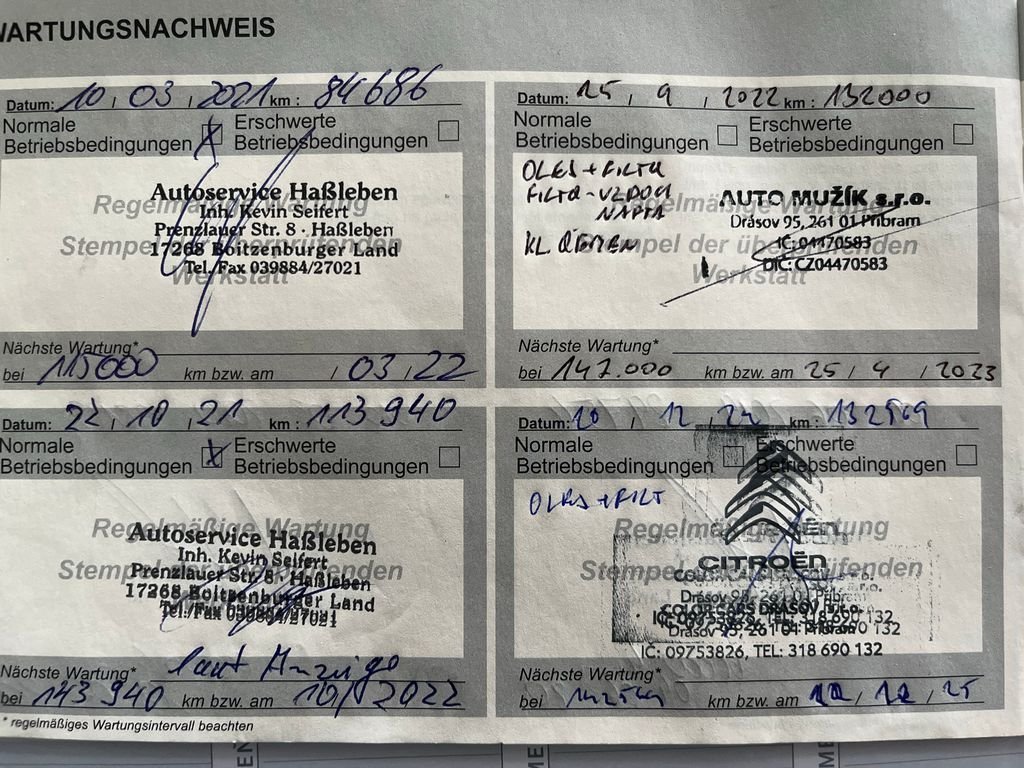 WARTUNGSNACHWEIS
Datum: 10 / 03 / 2021 km : 84686
Normale Betriebsbedingungen X Erschwerte Betriebsbedingungen
Regelmäßige Wartung
Stempel der überprüfenden
Werkstatt
Autoservice Haßleben
Inh. Kevin Seifert
Prenzlauer Str. 8 · Haßleben
17268 Boitzenburger Land
Tel./Fax 039884/27021
Nächste Wartung*
bei 115000 km bzw. am / 03 / 22
Datum: 25 / 9 / 2022 km : 132000
Normale Betriebsbedingungen Erschwerte Betriebsbedingungen
OLEJ + FILTR
FILTR - VZDUCH
NAFTA
Regelmäßige Wartung
Stempel der überprüfenden
Werkstatt
AUTO MUŽÍK s.r.o.
Drásov 95, 261 01 Příbram
IČ: 04470583
DIČ: CZ04470583
Nächste Wartung*
bei 147.000 km bzw. am 25 / 9 / 2023
Datum: 22 / 10 / 21 km : 113 940
Normale Betriebsbedingungen X Erschwerte Betriebsbedingungen
Regelmäßige Wartung
Stempel der überprüfenden
Autoservice Haßleben
Inh. Kevin Seifert
Prenzlauer Str. 8 · Haßleben
17268 Boitzenburger Land
Tel./Fax 039884/27021
Nächste Wartung* laut Anzeige
bei 143 940 km bzw. am 10 / 2022
* regelmäßiges Wartungsintervall beachten
Datum: / 12 / km : 132569
Normale Betriebsbedingungen Erschwerte Betriebsbedingungen
OLEJ + FILT
Regelmäßige Wartung
Stempel der überprüfenden
CITROËN
COLOR CARS DRÁSOV s.r.o.
Drásov 95, 261 01 Příbram
IČ: 09753826, TEL: 318 690 132
Nächste Wartung*
bei km bzw. am / /